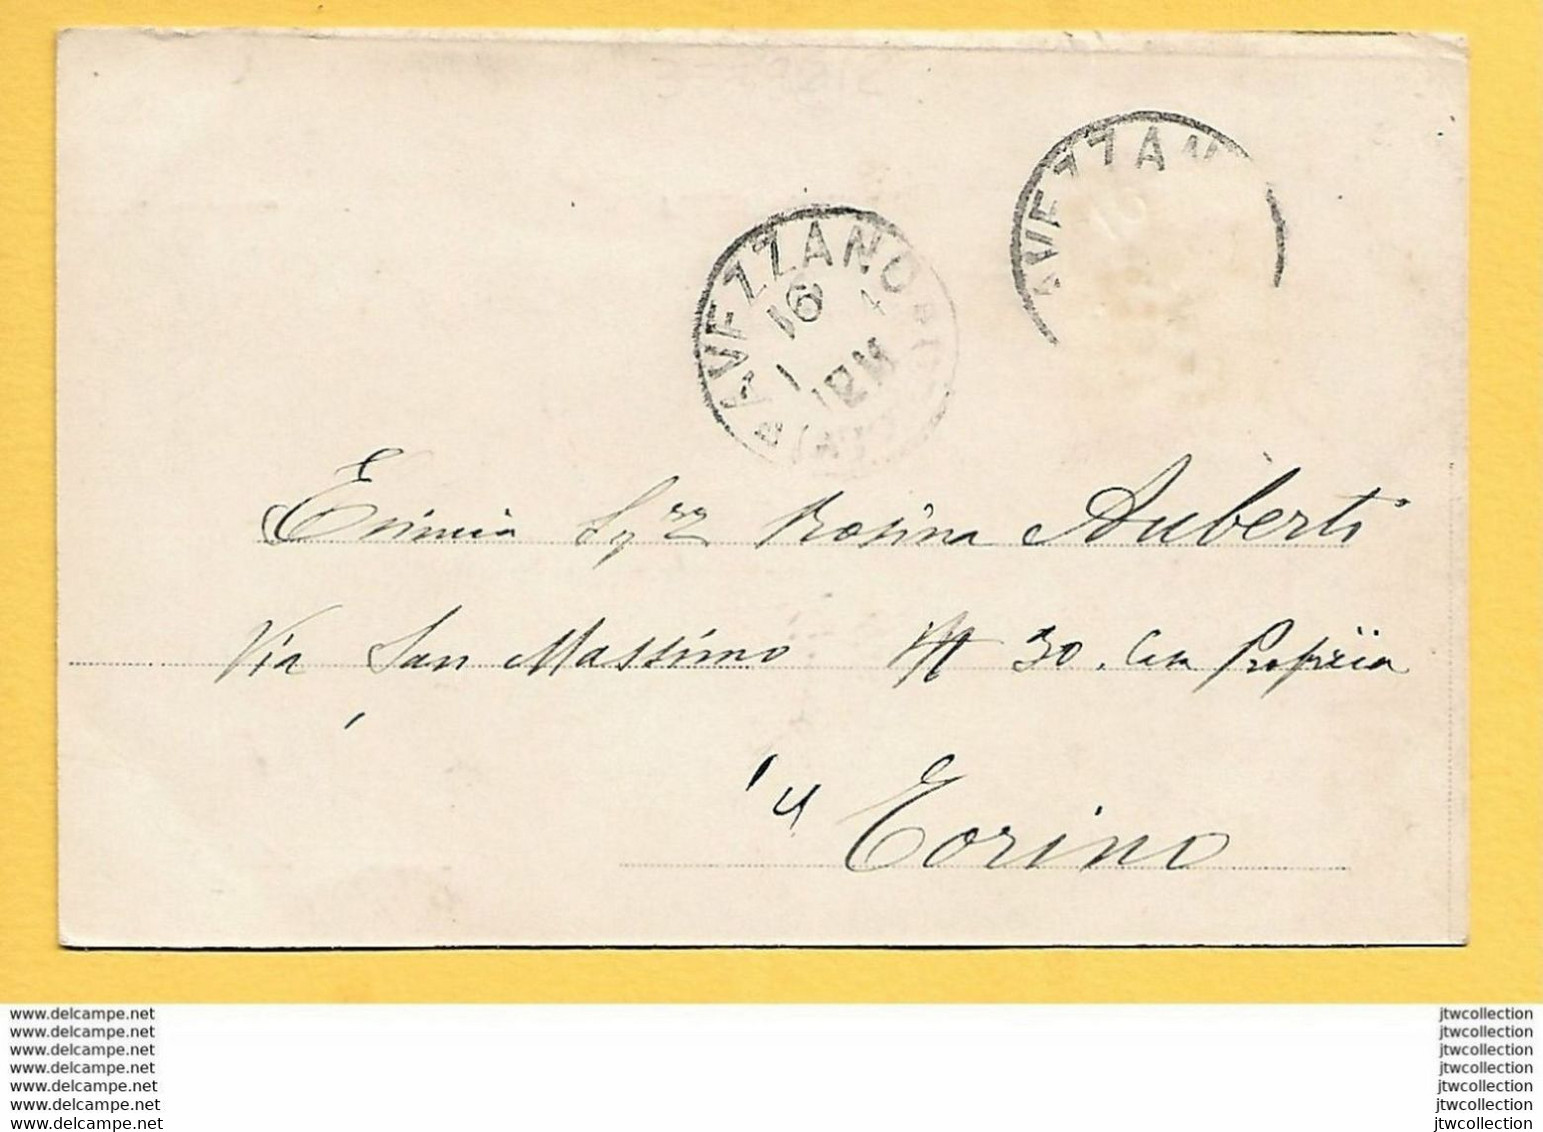 AVEZZAN
10
AVEZZANO
16 4
1 12M
Esimia Sigra Rosina Auberti
Via San Massimo N 30. Casa Profizia
Torino
www.delcampe.net
www.delcampe.net
www.delcampe.net
www.delcampe.net
www.delcampe.net
www.delcampe.net
www.delcampe.net
jtwcollection
jtwcollection
jtwcollection
jtwcollection
jtwcollection
jtwcollection
jtwcollection